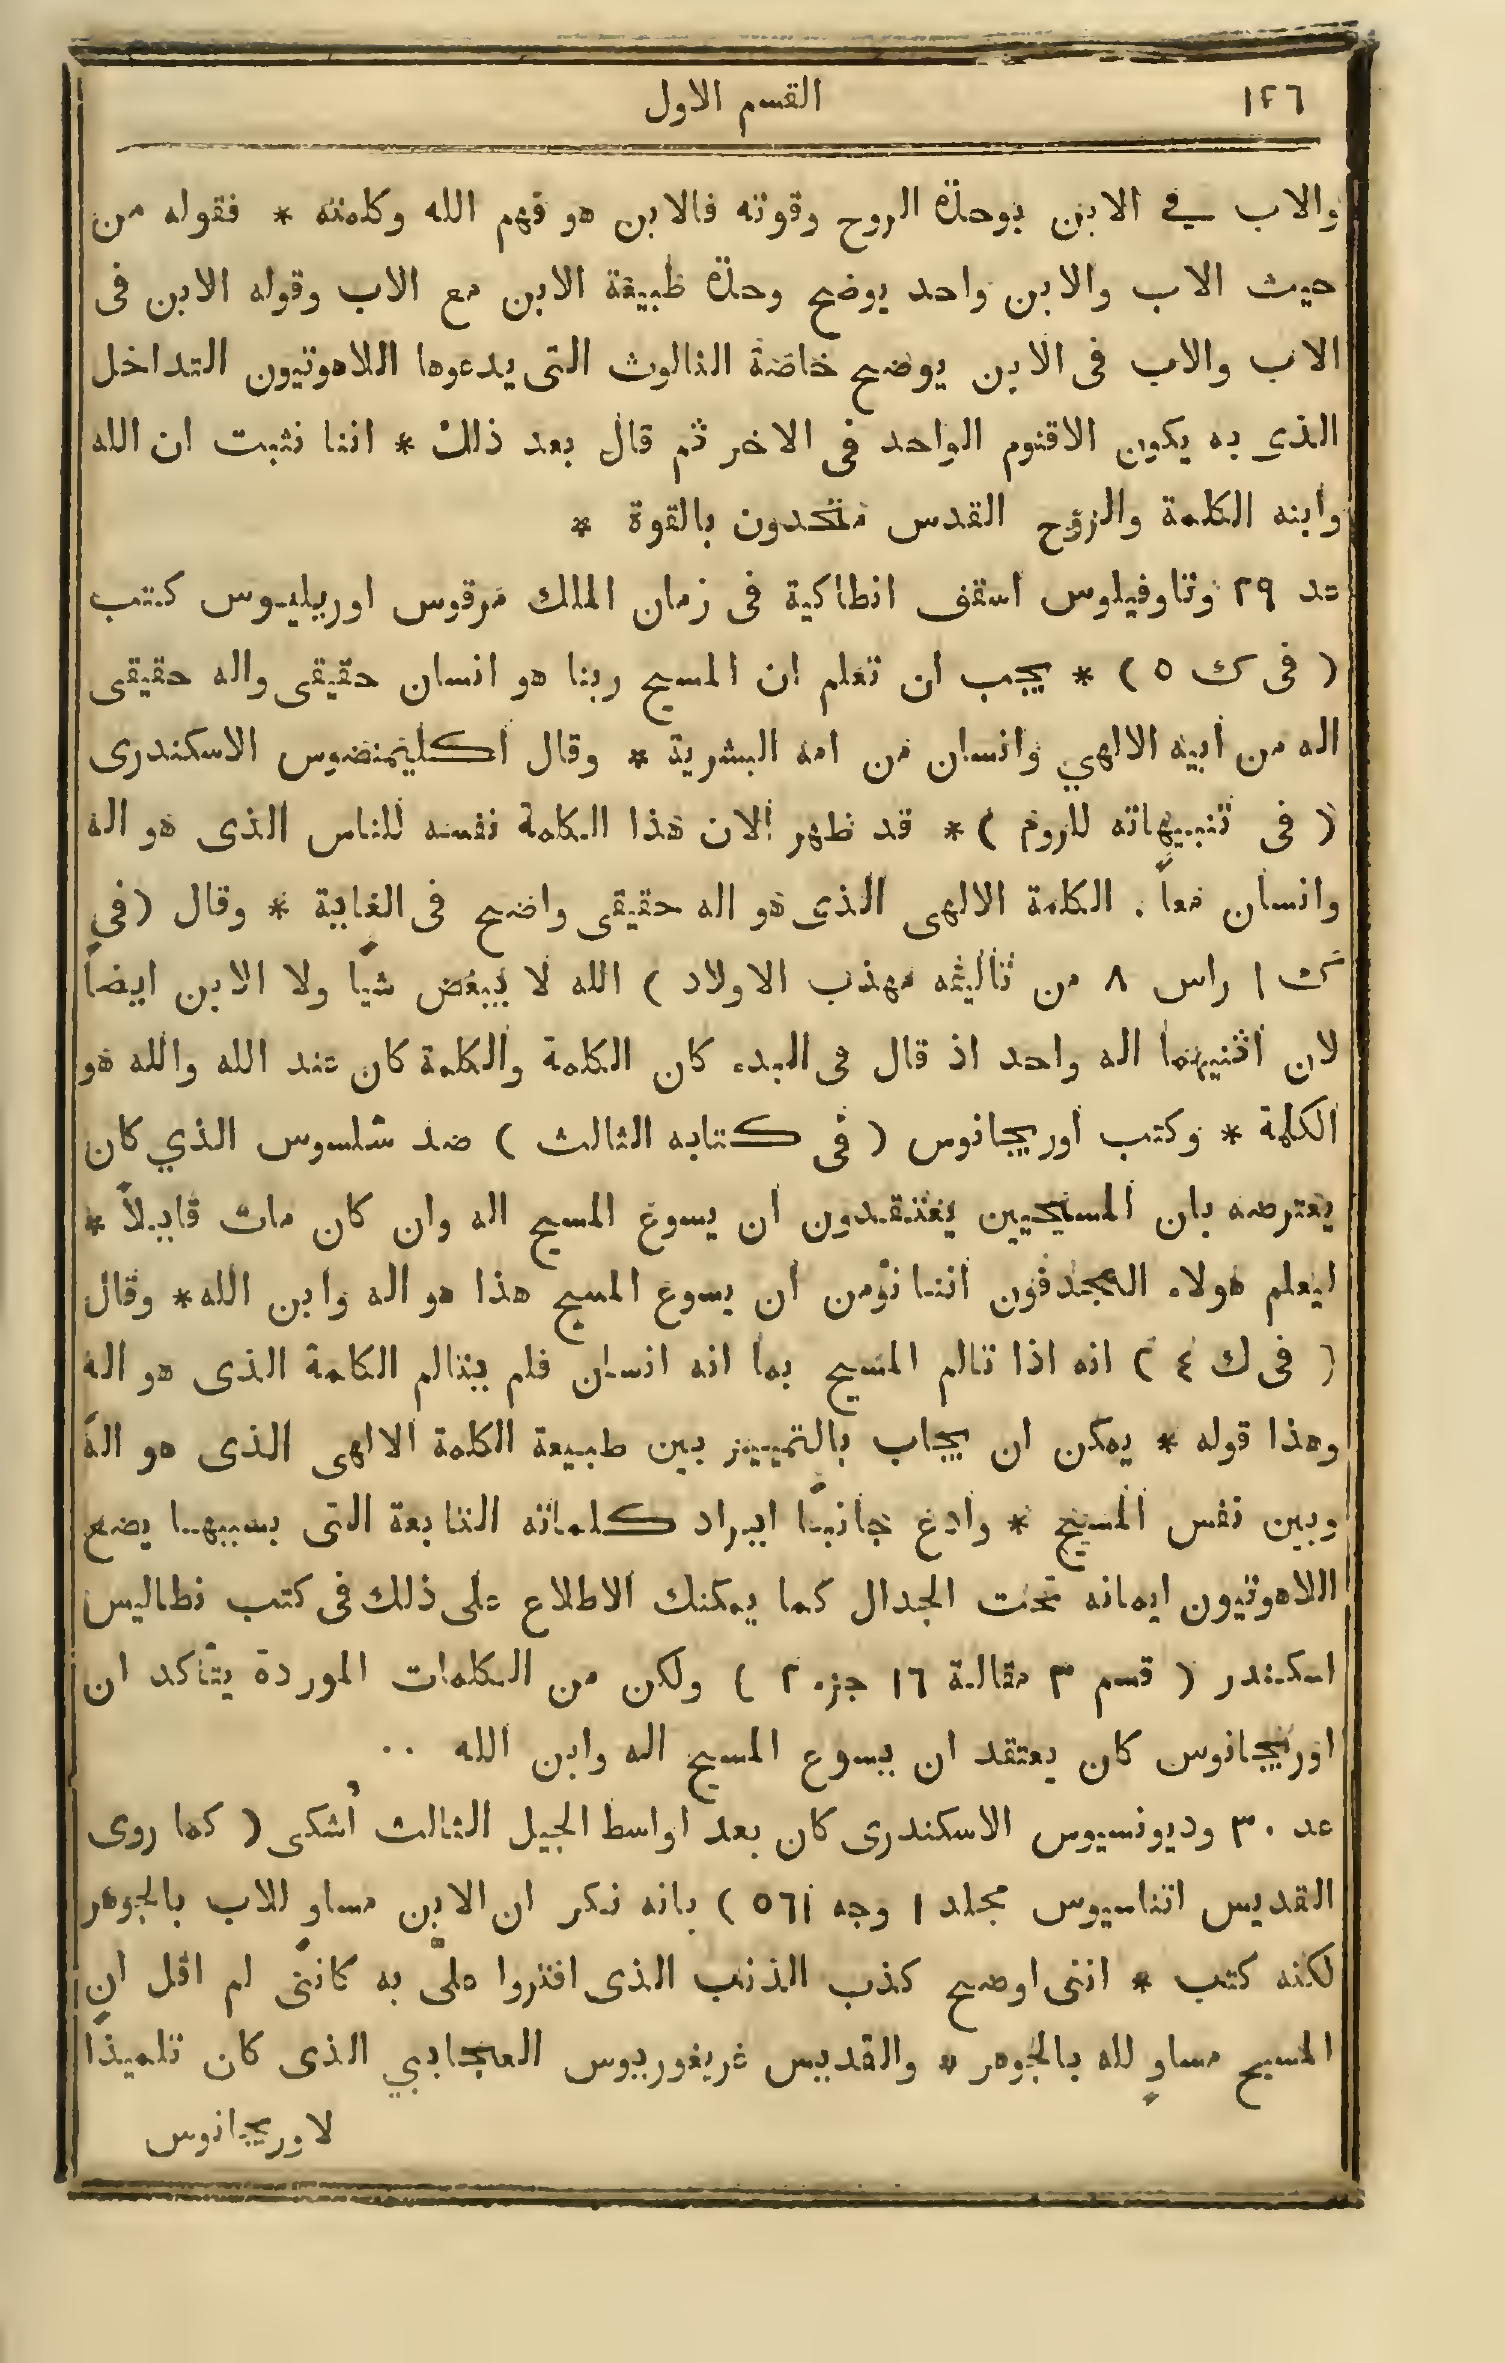 ١٢٦ القسم الاول
والاب في الابن بوحدة الروح وقوته فالابن هو فهم الله وكلمته * فقوله من
حيث الاب والابن واحد يوضح وحدة طبيعة الابن مع الاب وقوله الابن فى
الاب والاب فى الابن يوضح خاصة الثالوث التى يدعوها اللاهوتيون التداخل
الذى به يكون الاقنوم الواحد فى الاخر ثم قال بعد ذلك * اننا نثبت ان الله
وابنه الكلمة والروح القدس متحدون بالقوة *
عد ٢٩ وتاوفيلوس اسقف انطاكية فى زمان الملك مرقوس اوريليوس كتب
( فى ك ٥ ) * يجب ان تعلم ان المسيح ربنا هو انسان حقيقى واله حقيقى
اله من ابيه الالهي وانسان من امه البشرية * وقال اكليمنضوس الاسكندرى
( فى تنبيهاته للروم ) * قد ظهر الان هذا الكلمة نفسه للناس الذى هو اله
وانسان معاً . الكلمة الالهى الذى هو اله حقيقى واضح فى الغاية * وقال (فى
ك ١ راس ٨ من تاليفه مهذب الاولاد ) الله لا يبغض شيًا ولا الابن ايضاً
لان اثنيهما اله واحد اذ قال فى البدء كان الكلمة والكلمة كان عند الله والله هو
الكلمة * وكتب اوريجانوس ( فى كتابه الثالث ) ضد شلسوس الذي كان
يعترضه بان المسيحيين يعتقدون ان يسوع المسيح اله وان كان مات قايلاً *
ليعلم هولاء المجدفون اننا نؤمن ان يسوع المسيح هذا هو اله وابن الله * وقال
( فى ك ٤ ) انه اذا تالم المسيح بما انه انسان فلم يتالم الكلمة الذى هو اله
وهذا قوله * يمكن ان يجاب بالتمييز بين طبيعة الكلمة الالهى الذى هو اله
وبين نفس المسيح * وادع جانبًا ايراد كلماته التابعة التى بسببها يضع
اللاهوتيون ايمانه تحت الجدال كما يمكنك الاطلاع على ذلك فى كتب نطاليس
اسكندر ( قسم ٣ مقالة ١٦ جزء ٢ ) ولكن من الكلمات الموردة يتاكد ان
اوريجانوس كان يعتقد ان يسوع المسيح اله وابن الله ..
عد ٣٠ وديونسيوس الاسكندرى كان بعد اواسط الجيل الثالث أشكى ( كما روى
القديس اتناسيوس مجلد ١ وجه ٥٦١ ) بانه نكر ان الابن مساوٍ للاب بالجوهر
لكنه كتب * اننى اوضح كذب الذنب الذى افتروا علىّ به كاننى لم اقل ان
المسيح مساوٍ لله بالجوهر * والقديس غريغوريوس العجايبي الذى كان تلميذًا
لاوريجانوس